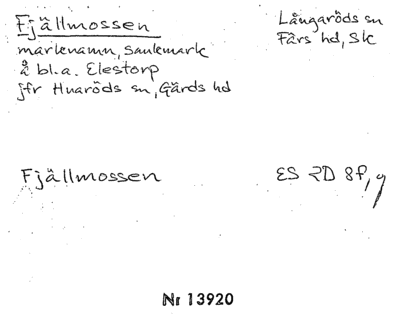 Fjällmossen
Långaröds sn
Färs hd, Sk
marknamn, sankmark
å bl.a. Elestorp
jfr Huaröds sn, Gärds hd
Fjällmossen
ES 2D 8f, g
Nr 13920